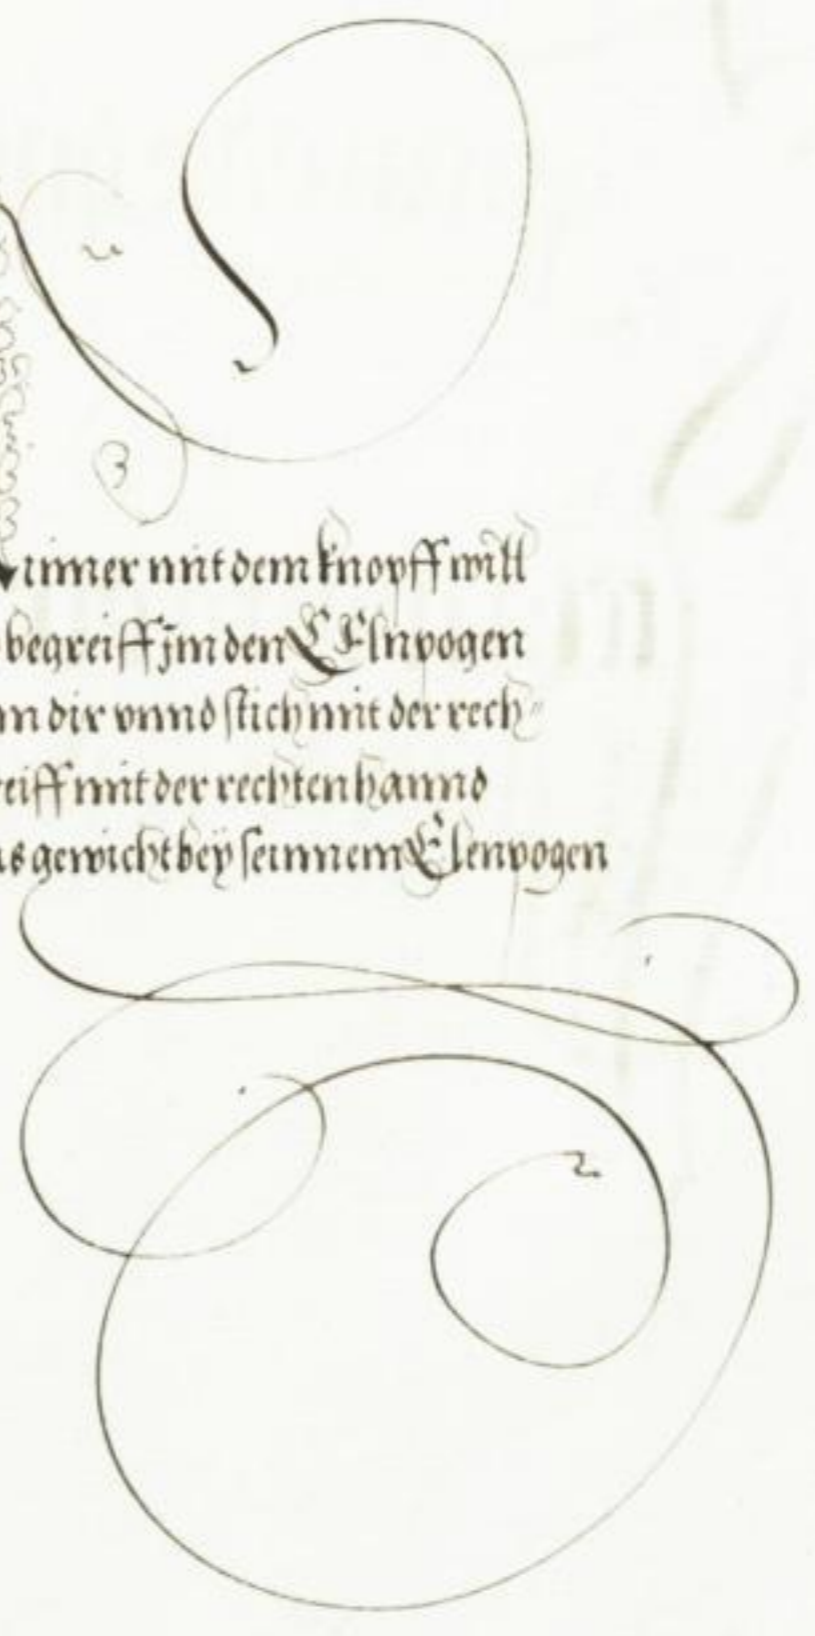 inner mit dem knopff will
begreiff jm den Elnpogen
dir vnnd stich mit der rech-
mit der rechten hannd
gewicht bey seinnem Elenpogen